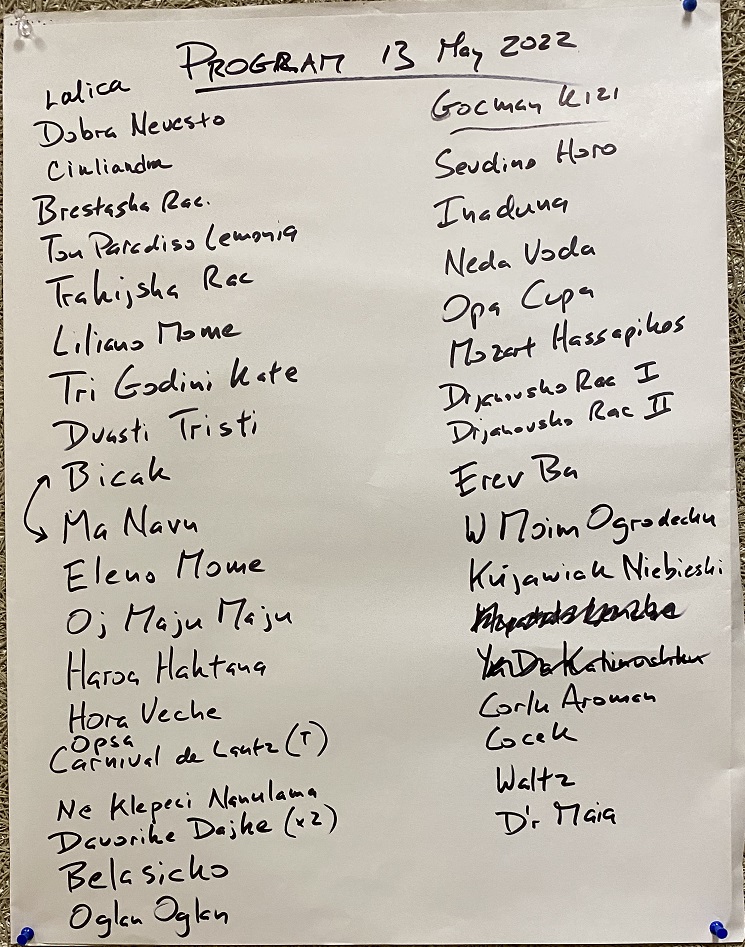 PROGRAM 13 May 2022
Lalica
Dobra Nevesto
Ciuliandra
Brestaska Rac.
Tou Paradiso Lemonia
Trakijska Rac
Liliano Mome
Tri Godini Kate
Dvasti Tristi
Bicak
Ma Navu
Eleno Mome
Oj Maju Maju
Haroa Haktana
Hora Veche
Opsa
Carnival de Lantz (T)
Ne Klepeci Nanulama
Davorike Dajke (x2)
Belasicko
Oglan Oglan
Gocman Kizi
Sevdino Horo
Inaduna
Neda Voda
Opa Cupa
Mozart Hassapikos
Drjanovsko Rac I
Drjanovsko Rac II
Erev Ba
W Moim Ogrodecku
Kujawiak Niebieski
Ya Da Kalinushku
Corlu Aroman
Cocek
Waltz
D'r Maia